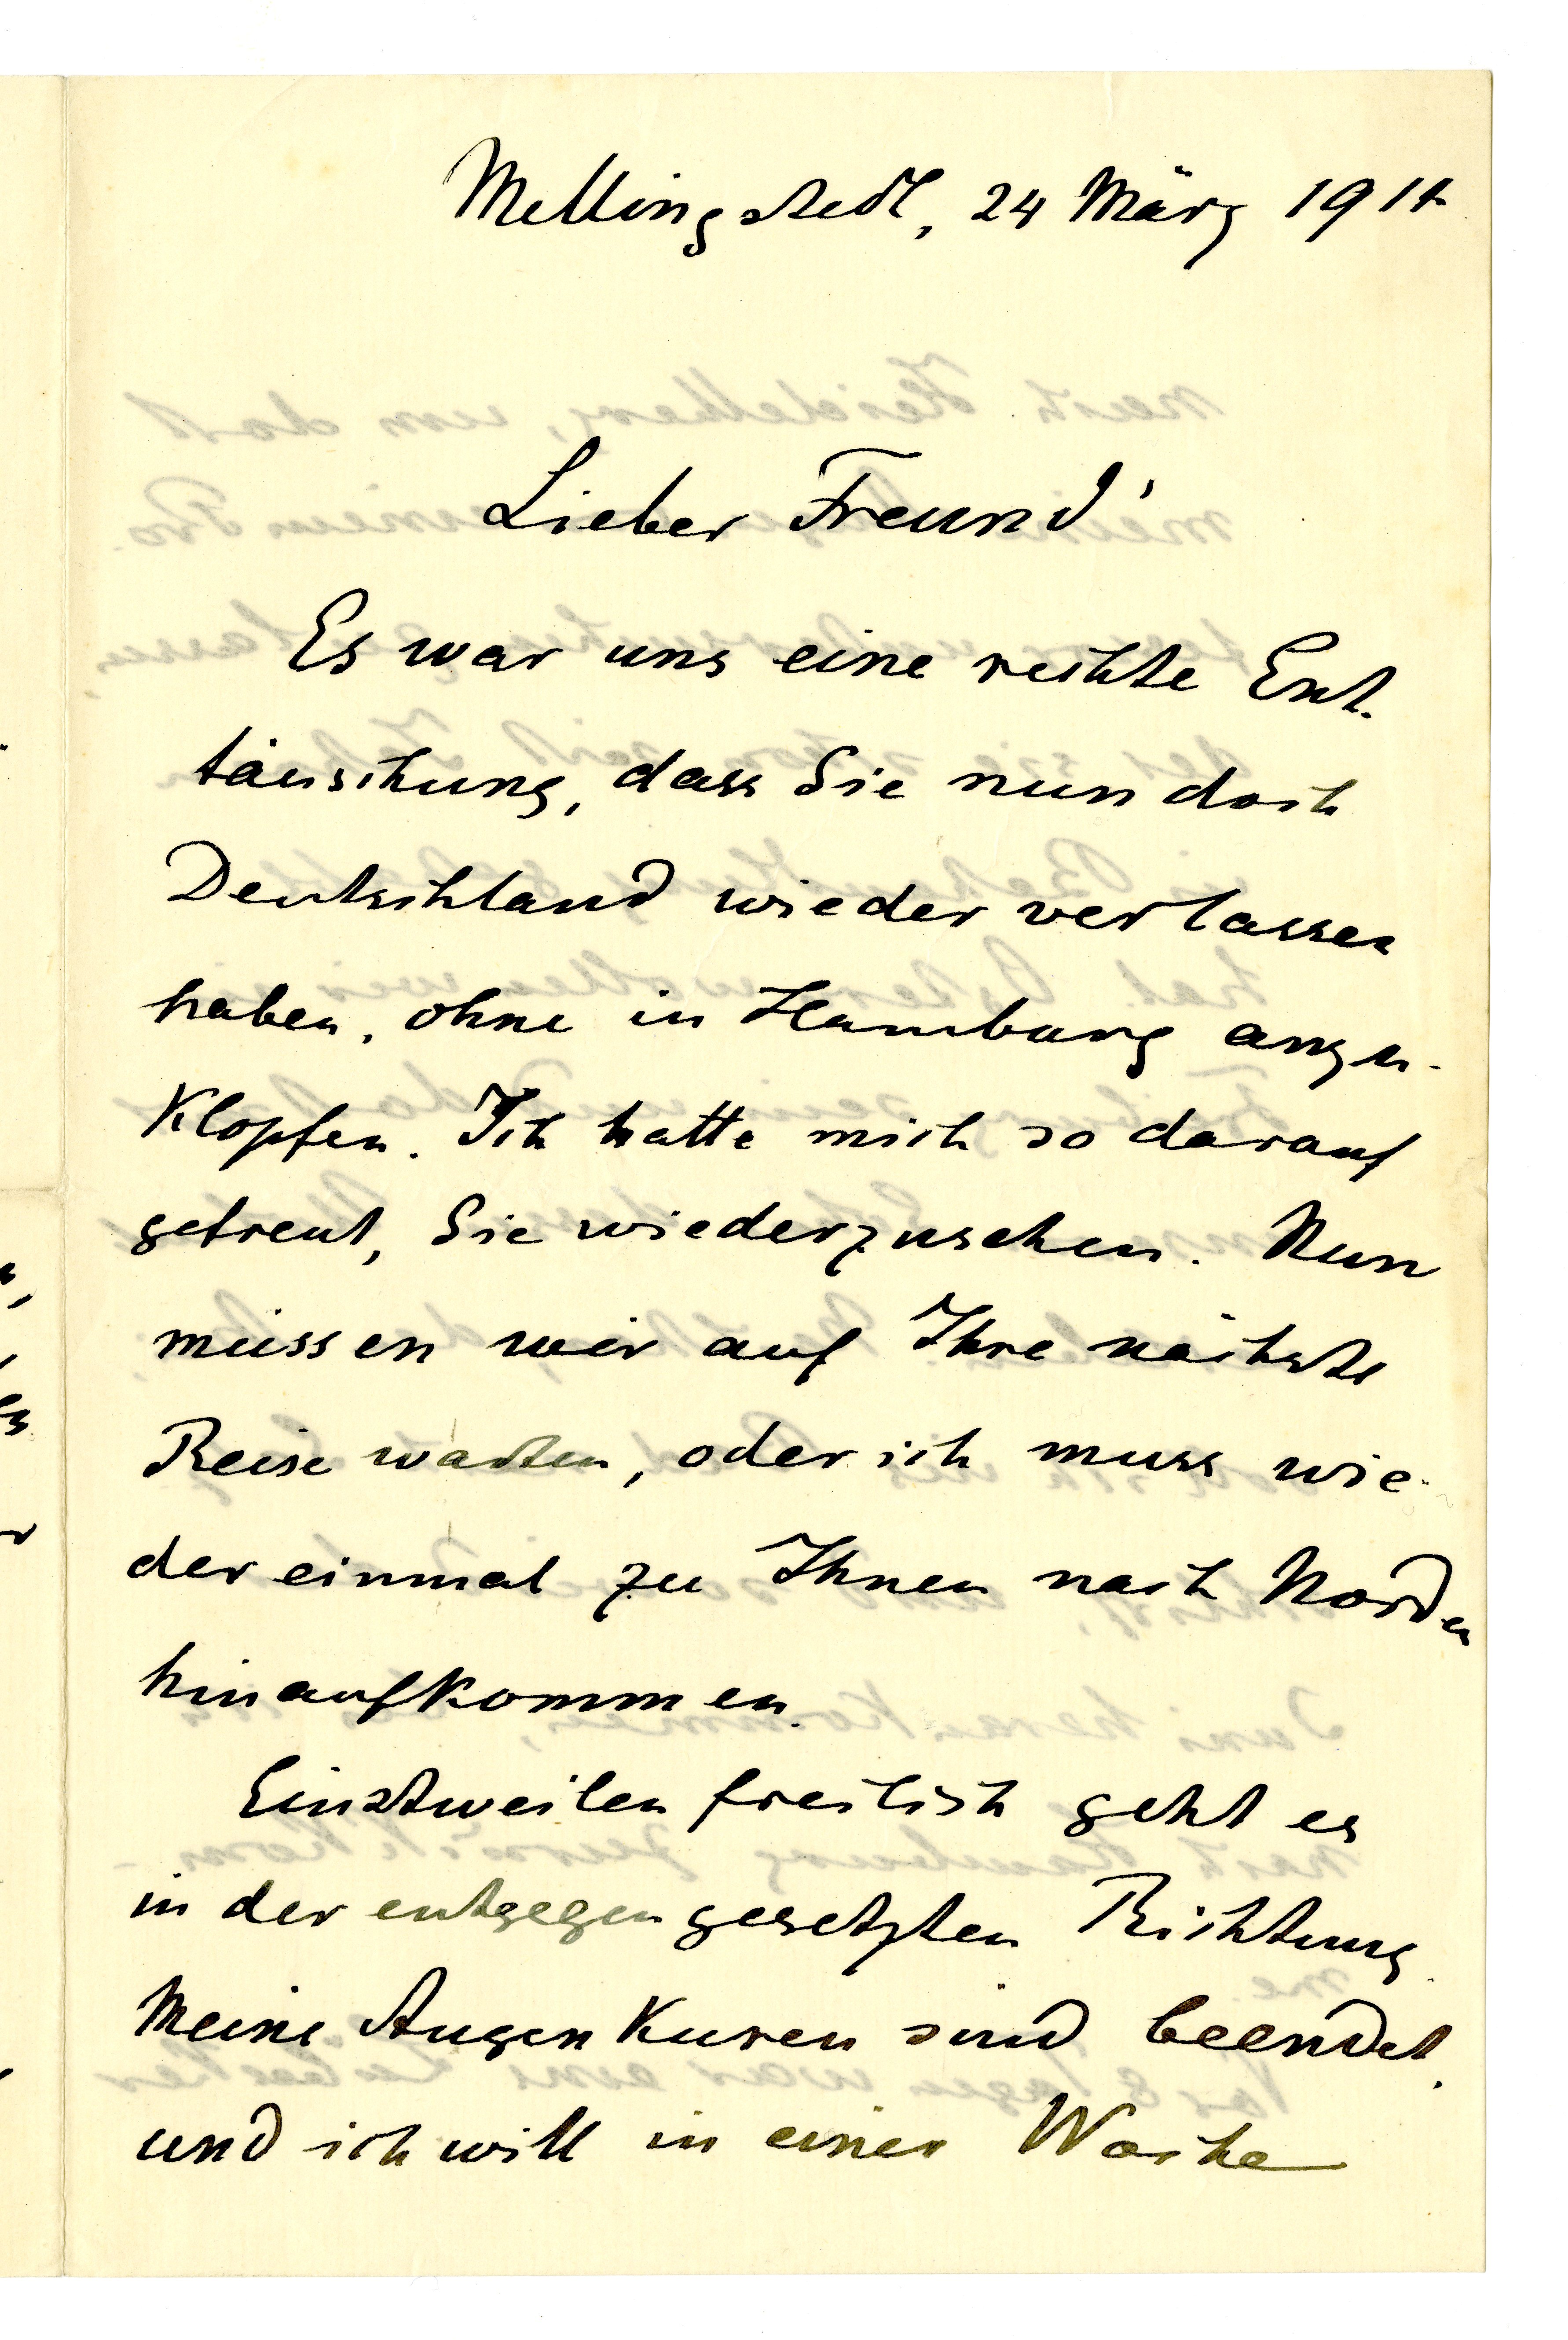 Mellingstedt, 24 März 1914
Lieber Freund!
Es war uns eine rechte Ent-
täuschung, dass Sie nun doch
Deutschland wieder verlassen
haben, ohne in Hamburg anzu-
klopfen. Ich hatte mich so darauf
gefreut, Sie wiederzusehen. Nun
müssen wir auf Ihre nächste
Reise warten, oder ich muss wie-
der einmal zu Ihnen nach Norden
hinaufkommen.
Einstweilen freilich geht es
in der entgegengesetzten Richtung.
Meine Augenkuren sind beendet,
und ich will in einer Woche